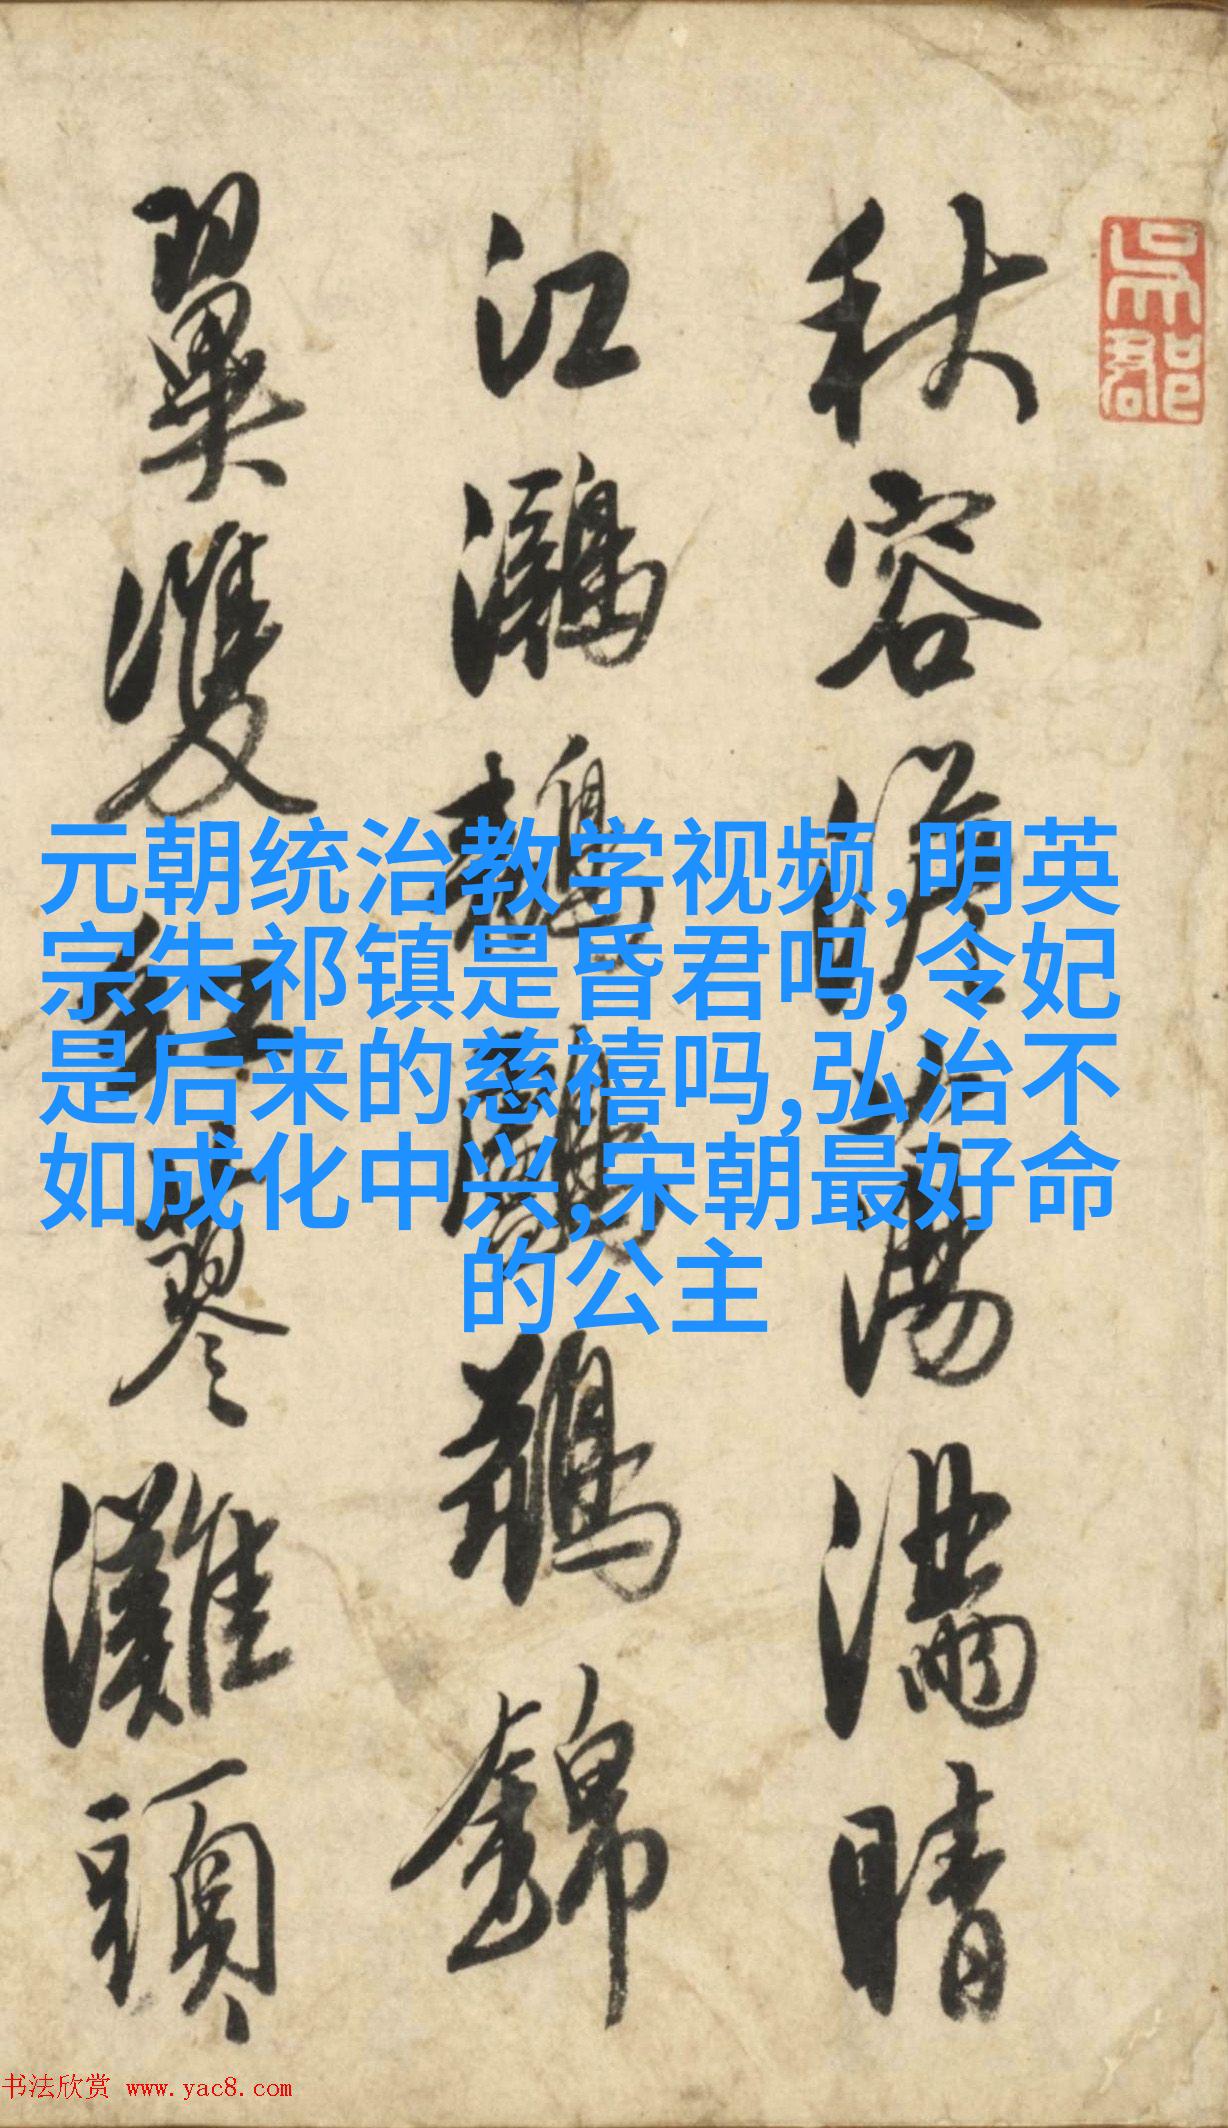 秋容澹蕩滿晴
江鸂鶒鸊鵜錦
翼雙紅蓼灘頭
吳郡
元朝统治教学视频,明英
宗朱祁镇是昏君吗,令妃
是后来的慈禧吗,弘治不
如成化中兴,宋朝最好命
的公主
书法欣赏 www.yac8.com